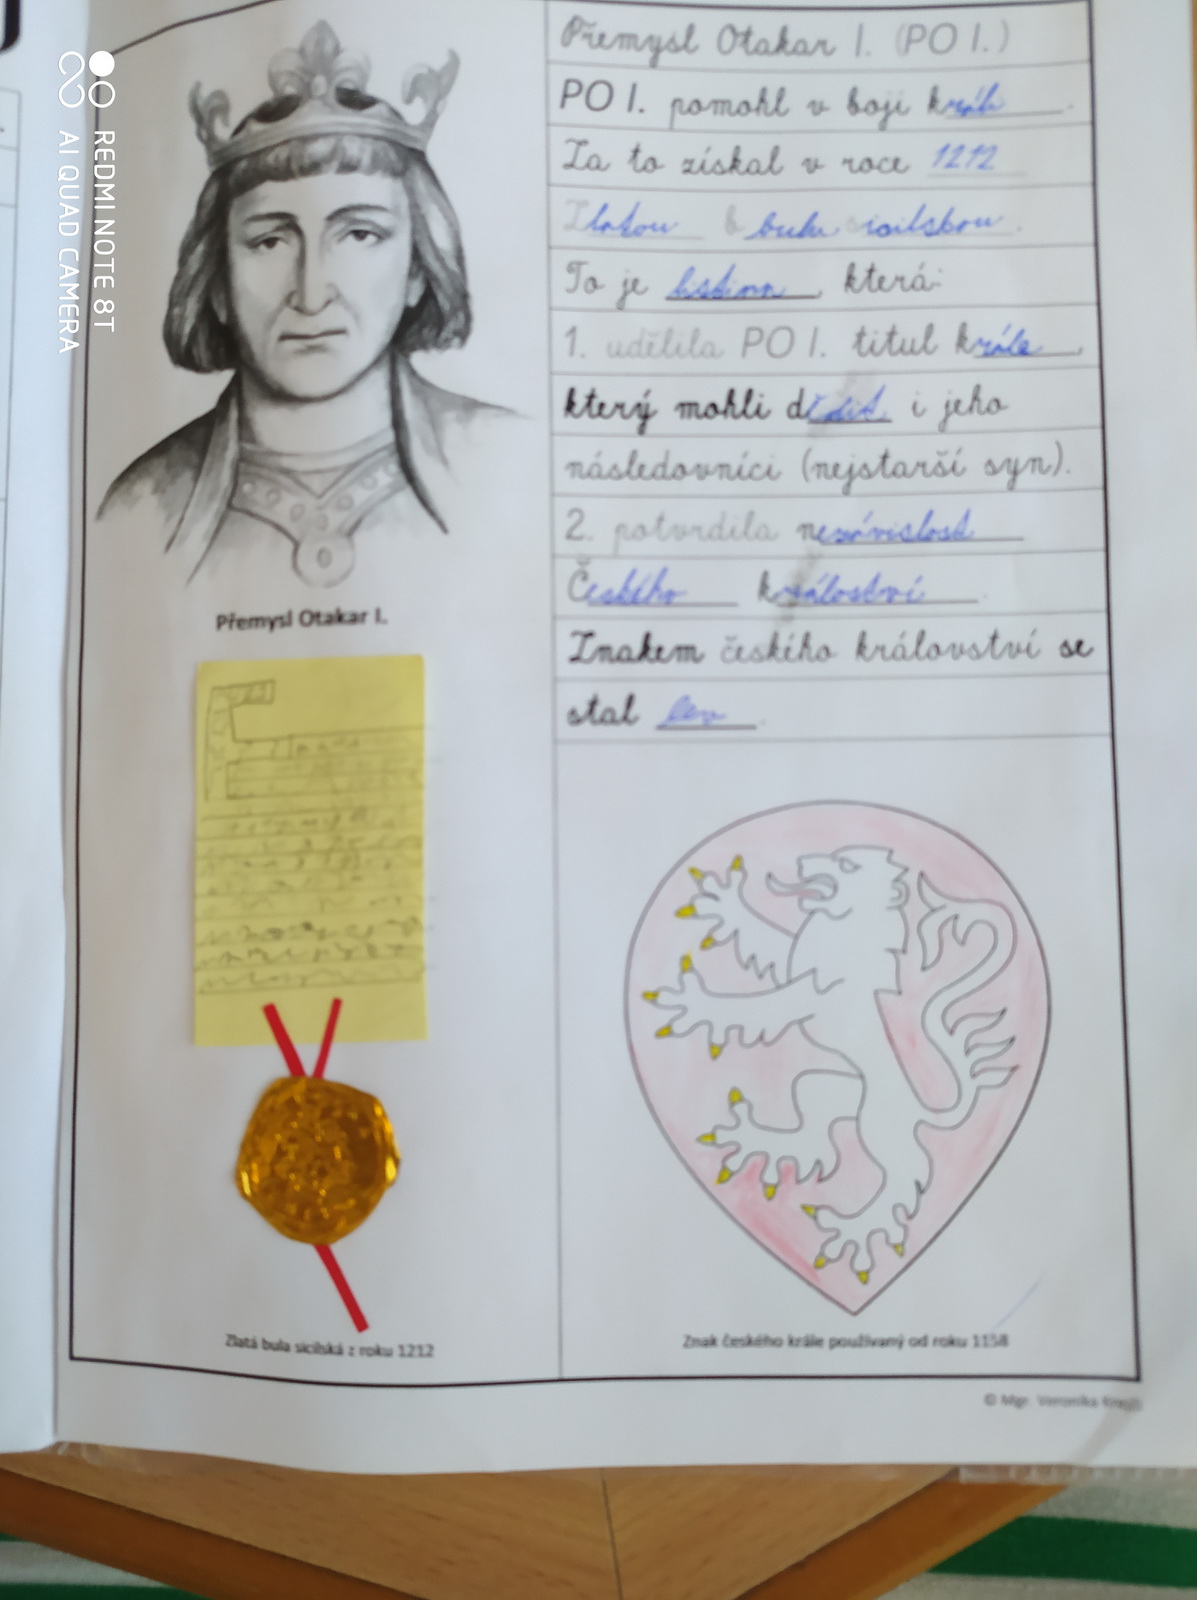 Přemysl Otakar I. (PO I.)
PO I. pomohl v boji králi.
Za to získal v roce 1212
Zlatou bulu sicilskou.
To je listina, která:
1. udělila PO I. titul krále,
který mohli dědit i jeho
následovníci (nejstarší syn).
2. potvrdila nezávislost
Českého království.
Znakem českého království se
stal lev.
Přemysl Otakar I.
Zlatá bula sicilská z roku 1212
Znak českého krále používaný od roku 1158
© Mgr. Veronika
REDMI NOTE 8T
AI QUAD CAMERA